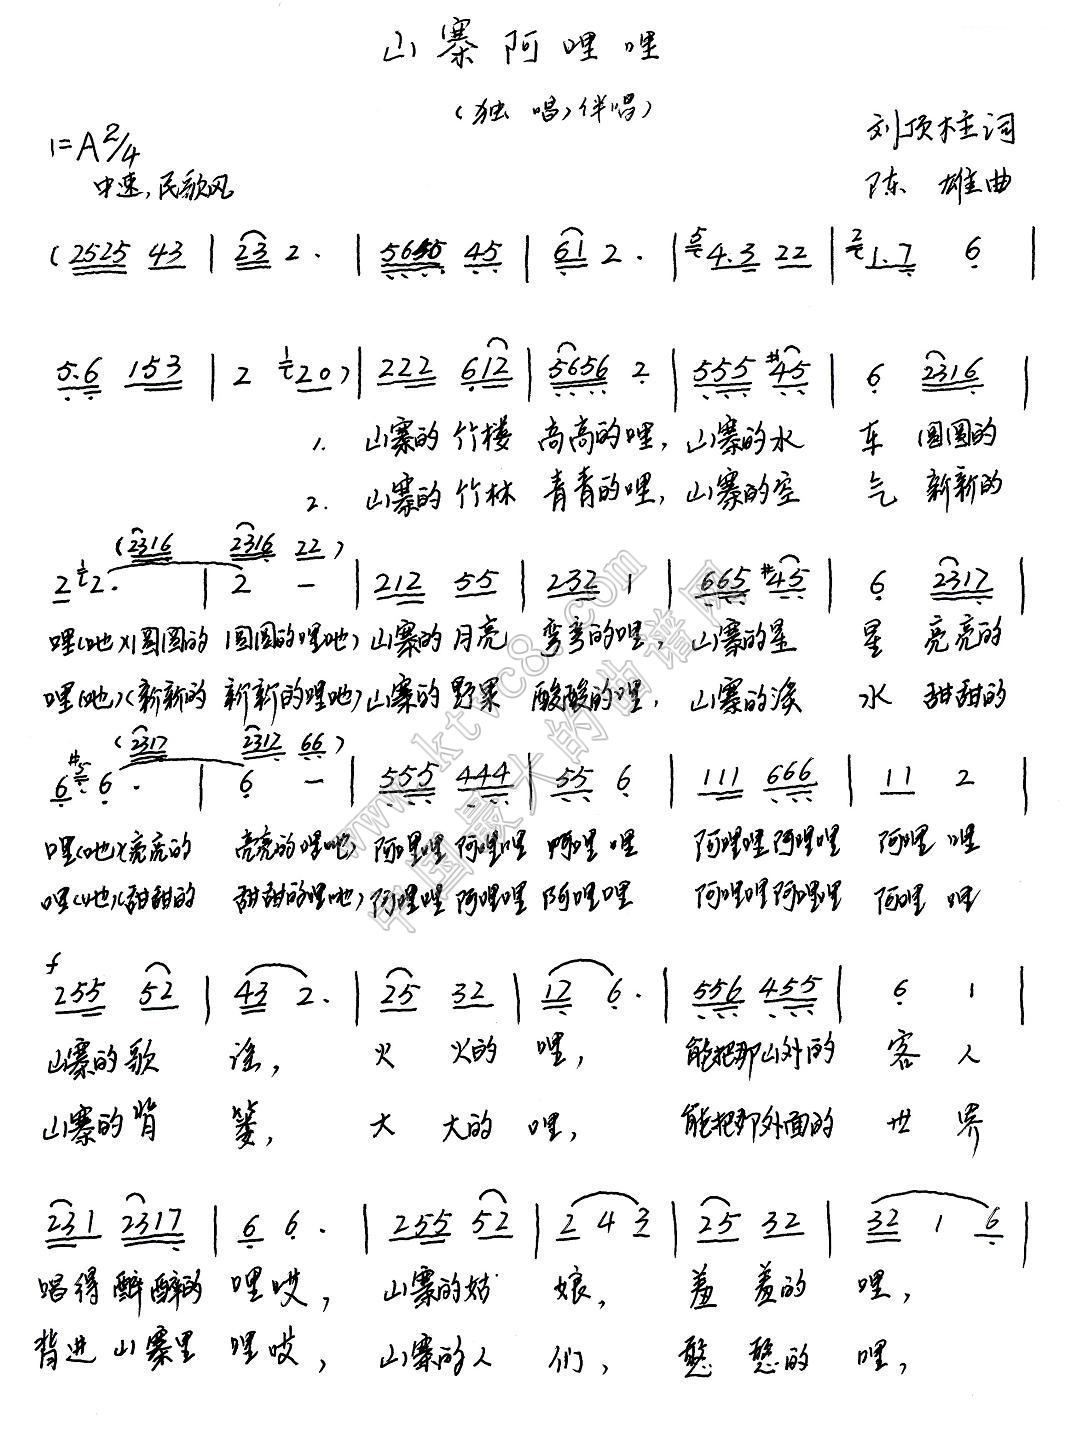 山寨阿哩哩
(独唱、伴唱)
1=A 2/4
刘顶柱词
中速,民歌风
陈 雄曲
(2525 43 | 23 2. | 5655 45 | 61 2. | 5 4.3 22 | 2 1.7 6 |
5.6 153 | 2 1 20) | 222 612 | 5656 2 | 555 #45 | 6 2316 |
1. 山寨的竹楼 高高的哩, 山寨的水 车 圆圆的
2. 山寨的竹林 青青的哩, 山寨的空 气 新新的
(2316 2316 22)
2 1 2. | 2 - | 212 55 | 232 1 | 665 #45 | 6 2317 |
哩(吔)(圆圆的 圆圆的哩吔) 山寨的月亮 弯弯的哩, 山寨的星 星 亮亮的
哩(吔)(新新的 新新的哩吔) 山寨的野果 酸酸的哩, 山寨的溪 水 甜甜的
(2317 2312 66)
6 #5 6. | 6 - | 555 444 | 55 6 | 111 666 | 11 2 |
哩(吔)(亮亮的 亮亮的哩吔) 阿哩哩 阿哩哩 阿哩 哩 阿哩哩阿哩哩 阿哩 哩
哩(吔)(甜甜的 甜甜的哩吔) 阿哩哩 阿哩哩 阿哩哩 阿哩哩阿哩哩 阿哩 哩
f
255 52 | 43 2. | 25 32 | 12 6. | 556 455 | 6 1 |
山寨的歌 谣, 火 火的 哩, 能把那山外的 客 人
山寨的背 篓, 大 大的 哩, 能把那外面的 世 界
231 2317 | 6 6. | 255 52 | 2 4 3 | 25 32 | 32 1 6 |
唱得醉醉的 哩哎, 山寨的姑 娘, 羞 羞的 哩,
背进山寨里 哩哎, 山寨的人 们, 憨 憨的 哩,
www.ktvc8.com
中国最大的曲谱网